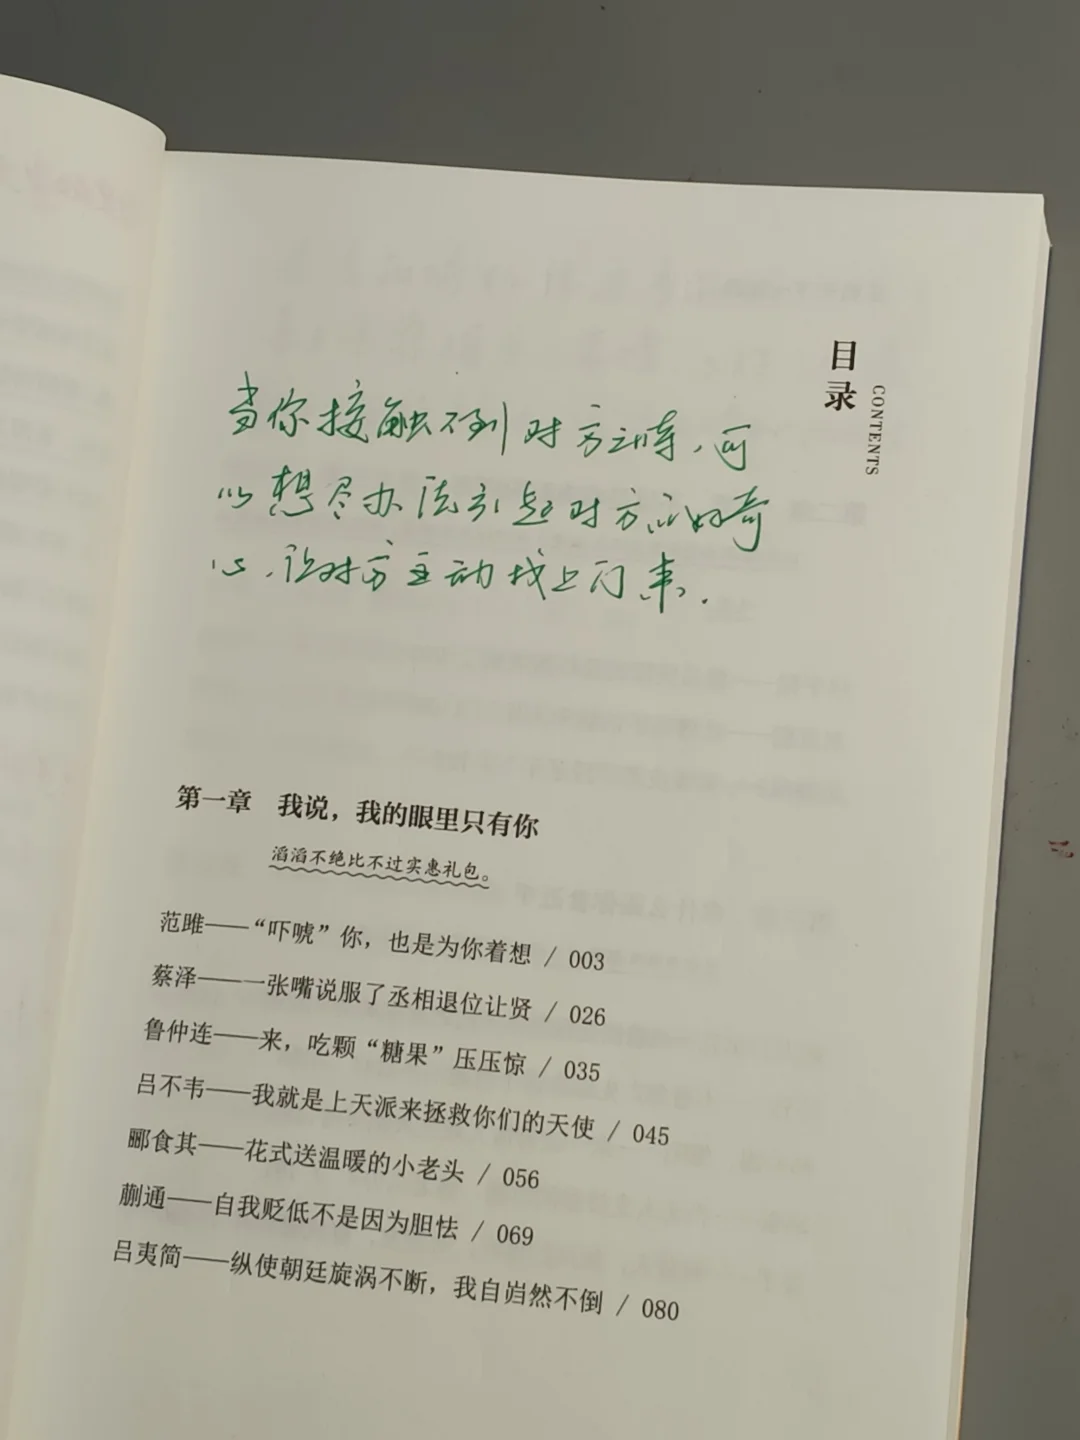 目录
CONTENTS
当你接触不到对方时，可
以想尽办法引起对方的好奇
心，让对方主动找上门来.
第一章 我说，我的眼里只有你
滔滔不绝比不过实惠礼包。
范雎——“吓唬”你，也是为你着想 / 003
蔡泽——一张嘴说服了丞相退位让贤 / 026
鲁仲连——来，吃颗“糖果”压压惊 / 035
吕不韦——我就是上天派来拯救你们的天使 / 045
郦食其——花式送温暖的小老头 / 056
蒯通——自我贬低不是因为胆怯 / 069
吕夷简——纵使朝廷旋涡不断，我自岿然不倒 / 080